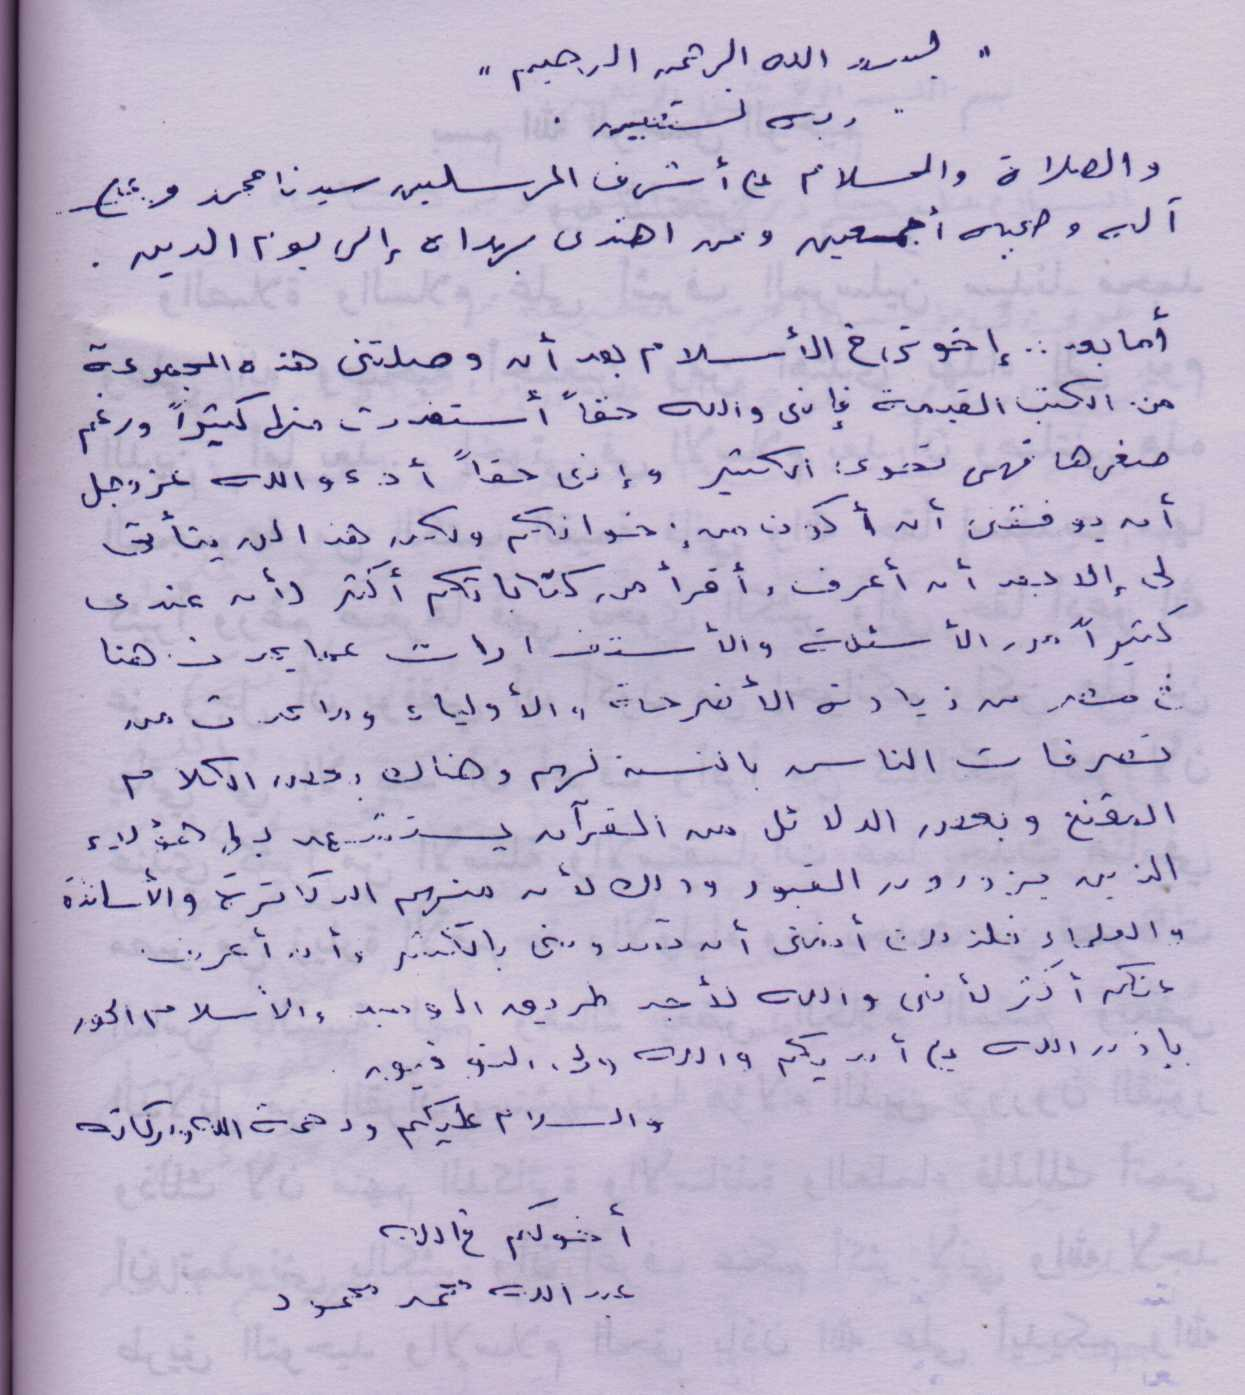 " بسم الله الرحمن الرحيم "
" وبه نستعين .
والصلاة والسلام على أشرف المرسلين سيدنا محمد وعلى
آله وصحبه أجمعين ومن اهتدى بهداه إلى يوم الدين .
أما بعد .. إخوتي في الأسلام بعد أن وصلتني هذه المجموعة
من الكتب القيمة فإني والله حقاً أستفدت منها كثيراً ورغم
صغرها فهى تحوى الكثير وإنى حقاً أدعو الله عز وجل
أن يوفقنى أن أكون من إخوانكم ولكن هذا لن يتأتى
لى إلا بعد أن أعرف وأقرأ من كتاباتكم أكثر لأن عندى
كثيراً من الأسئلة والأستفسارات عما يحدث هنا
في مصر من زيارة الأضرحة والأولياء وما يحدث من
تصرفات الناس بالنسبة لهم وهناك بعض الكلام
المقنع وبعض الدلائل من القرآن يستشهد بها هؤلاء
الذين يزورون القبور وذلك لأن منهم الدكاترة والأساتذة
والعلماء فلذلك أتمنى أن تمدونى بالكثير وأن أعرف
عنكم أكثر لأنى والله لأجد طريق التوحيد والأسلام الحق
بإذن الله على أيديكم والله ولى التوفيق .
والسلام عليكم ورحمة الله وبركاته
أخوكم في الله
عبد الله محمد محمود